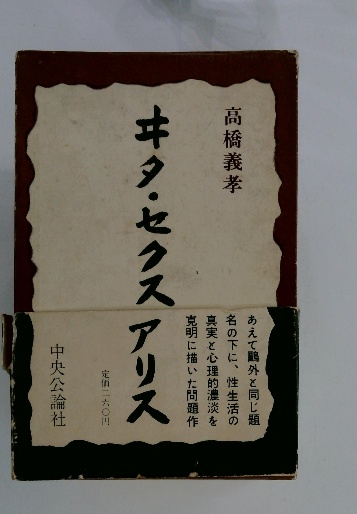 高橋義孝
ヰタ・セクスアリス
あえて鷗外と同じ題
名の下に、性生活の
真実と心理的濃淡を
克明に描いた問題作
定価二六〇円
中央公論社